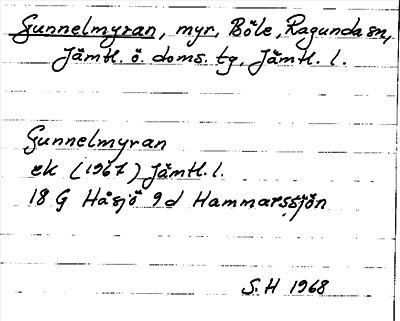 Gunnelmyran, myr, Böle, Ragunda sn,
Jämtl. ö. doms. tg, Jämtl. l.
Gunnelmyran
ek (1967) Jämtl. l.
18 G Håsjö 9d Hammarssjön
S.H 1968